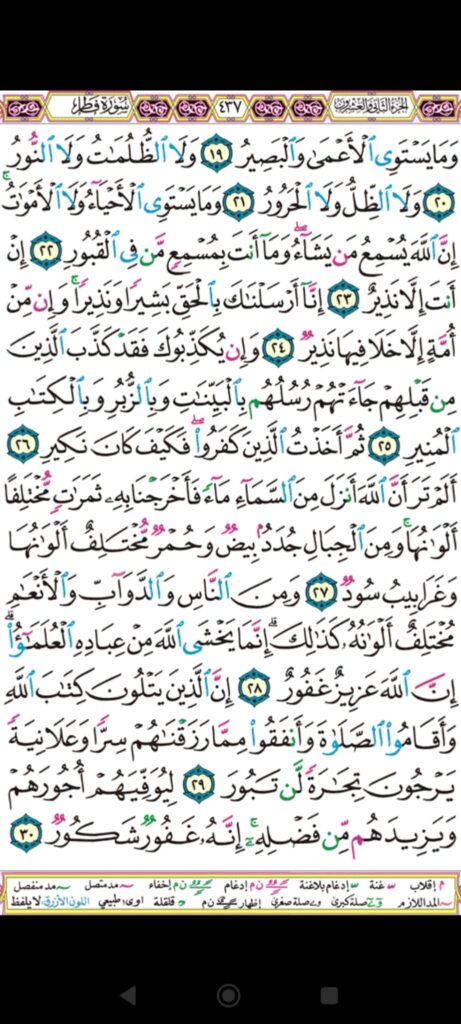 سُورَةُ فَاطِرٍ ٤٣٧ الجُزْءُ الثَّانِي وَالعِشْرُونَ
وَمَا يَسْتَوِي الْأَعْمَىٰ وَالْبَصِيرُ ١٩ وَلَا الظُّلُمَاتُ وَلَا النُّورُ
٢٠ وَلَا الظِّلُّ وَلَا الْحَرُورُ ٢١ وَمَا يَسْتَوِي الْأَحْيَاءُ وَلَا الْأَمْوَاتُ ۚ
إِنَّ اللَّهَ يُسْمِعُ مَن يَشَاءُ ۖ وَمَا أَنتَ بِمُسْمِعٍ مَّن فِي الْقُبُورِ ٢٢ إِنْ
أَنتَ إِلَّا نَذِيرٌ ٢٣ إِنَّا أَرْسَلْنَاكَ بِالْحَقِّ بَشِيرًا وَنَذِيرًا ۚ وَإِن مِّنْ
أُمَّةٍ إِلَّا خَلَا فِيهَا نَذِيرٌ ٢٤ وَإِن يُكَذِّبُوكَ فَقَدْ كَذَّبَ الَّذِينَ
مِن قَبْلِهِمْ جَاءَتْهُمْ رُسُلُهُم بِالْبَيِّنَاتِ وَبِالزُّبُرِ وَبِالْكِتَابِ
الْمُنِيرِ ٢٥ ثُمَّ أَخَذْتُ الَّذِينَ كَفَرُوا ۖ فَكَيْفَ كَانَ نَكِيرِ ٢٦
أَلَمْ تَرَ أَنَّ اللَّهَ أَنزَلَ مِنَ السَّمَاءِ مَاءً فَأَخْرَجْنَا بِهِ ثَمَرَاتٍ مُّخْتَلِفًا
أَلْوَانُهَا ۚ وَمِنَ الْجِبَالِ جُدَدٌ بِيضٌ وَحُمْرٌ مُّخْتَلِفٌ أَلْوَانُهَا
وَغَرَابِيبُ سُودٌ ٢٧ وَمِنَ النَّاسِ وَالدَّوَابِّ وَالْأَنْعَامِ
مُخْتَلِفٌ أَلْوَانُهُ كَذَٰلِكَ ۗ إِنَّمَا يَخْشَى اللَّهَ مِنْ عِبَادِهِ الْعُلَمَاءُ ۗ
إِنَّ اللَّهَ عَزِيزٌ غَفُورٌ ٢٨ إِنَّ الَّذِينَ يَتْلُونَ كِتَابَ اللَّهِ
وَأَقَامُوا الصَّلَاةَ وَأَنفَقُوا مِمَّا رَزَقْنَاهُمْ سِرًّا وَعَلَانِيَةً
يَرْجُونَ تِجَارَةً لَّن تَبُورَ ٢٩ لِيُوَفِّيَهُمْ أُجُورَهُمْ
وَيَزِيدَهُم مِّن فَضْلِهِ ۚ إِنَّهُ غَفُورٌ شَكُورٌ ٣٠
م إقلاب غنة إدغام بلاغنة ن م إدغام ن م إخفاء مد متصل مد منفصل
المد اللازم صلة كبرى صلة صغرى إظهار ن م قلقلة اوى: طبيعي اللون الأزرق: لا يلفظ